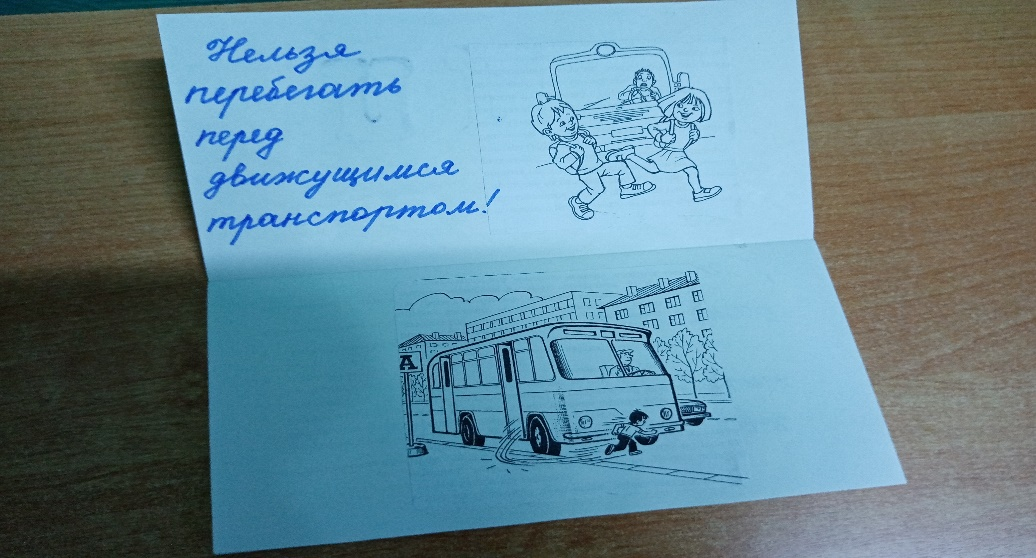 Нельзя
перебегать
перед
движущимся
транспортом!
А